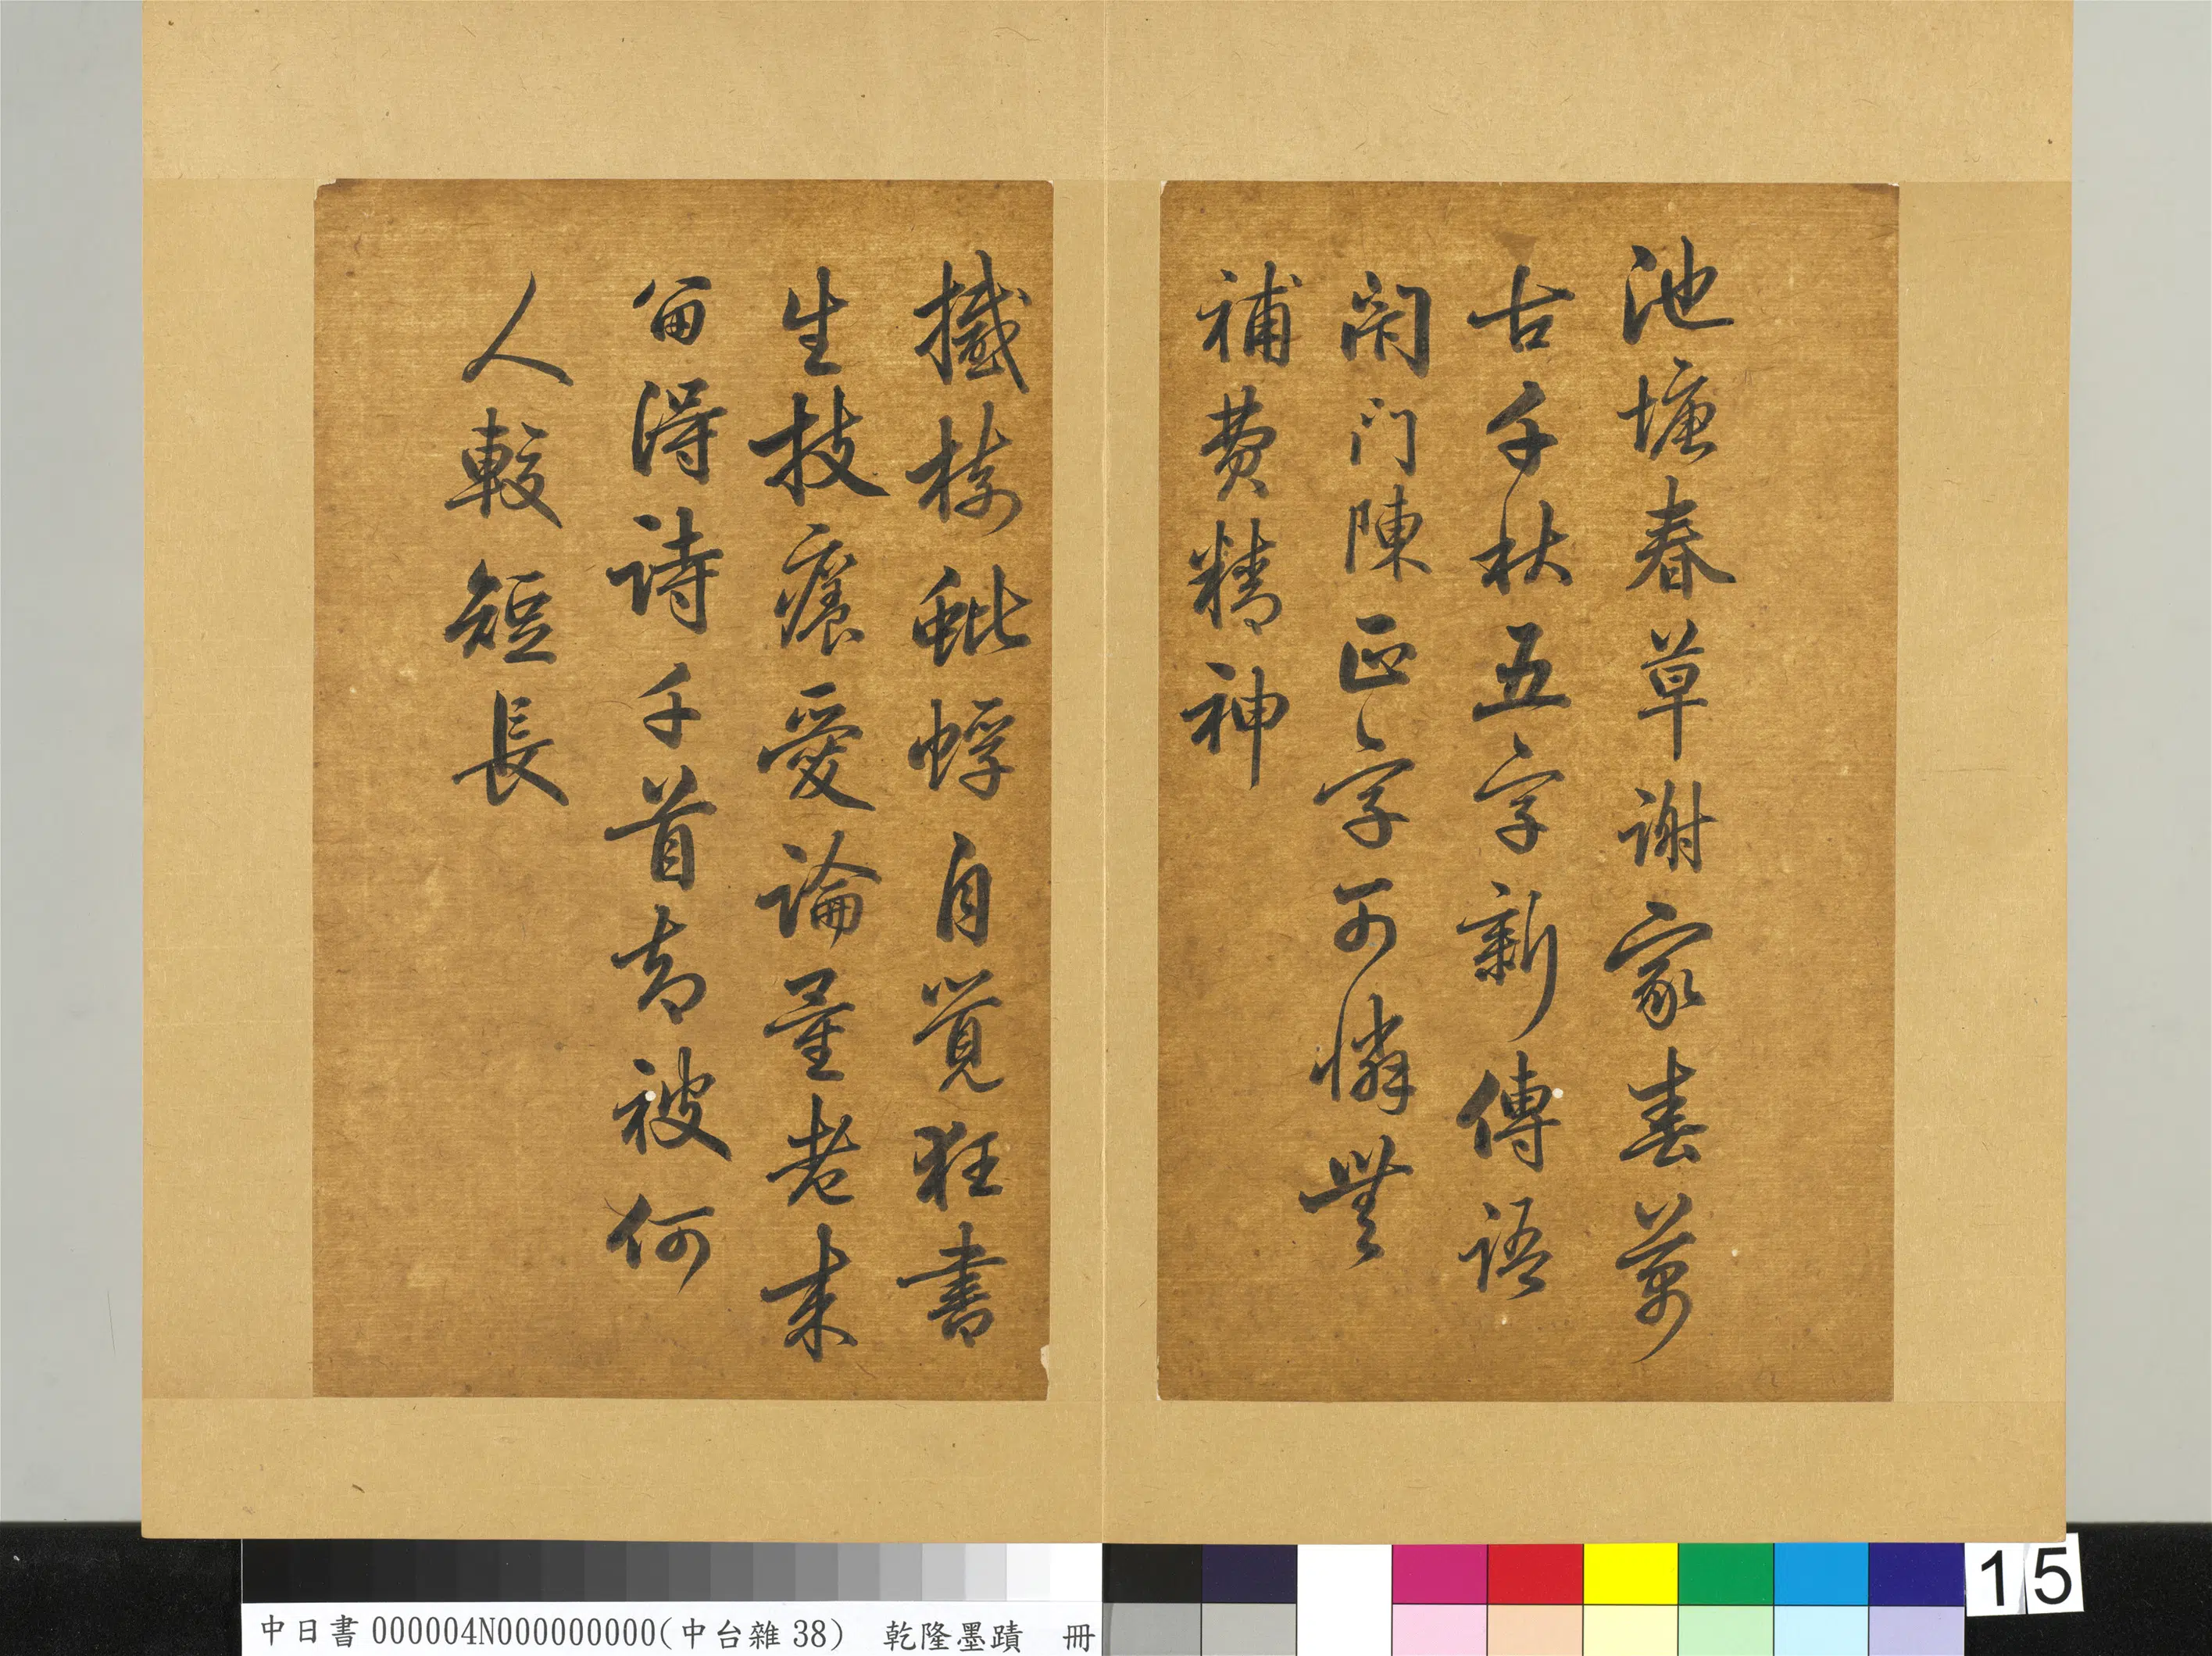 池塘春草謝家春萬
古千秋五字新傳語
閉門陳正字可憐無
補費精神
撼樹蚍蜉自覺狂書
生技癢愛論量老來
留得詩千首却被何
人較短長
中日書000004N000000000(中台雜38) 乾隆墨蹟 冊
15